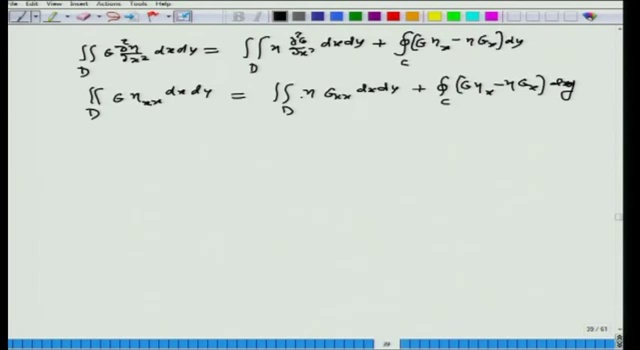 Edit View Insert Actions Tools Help
∬_D G ∂²η/∂x² dxdy = ∬_D η ∂²G/∂x² dxdy + ∮_C (G η_x − η G_x) dy
∬_D G η_xx dxdy = ∬_D η G_xx dxdy + ∮_C (G η_x − η G_x) dy
29 / 61